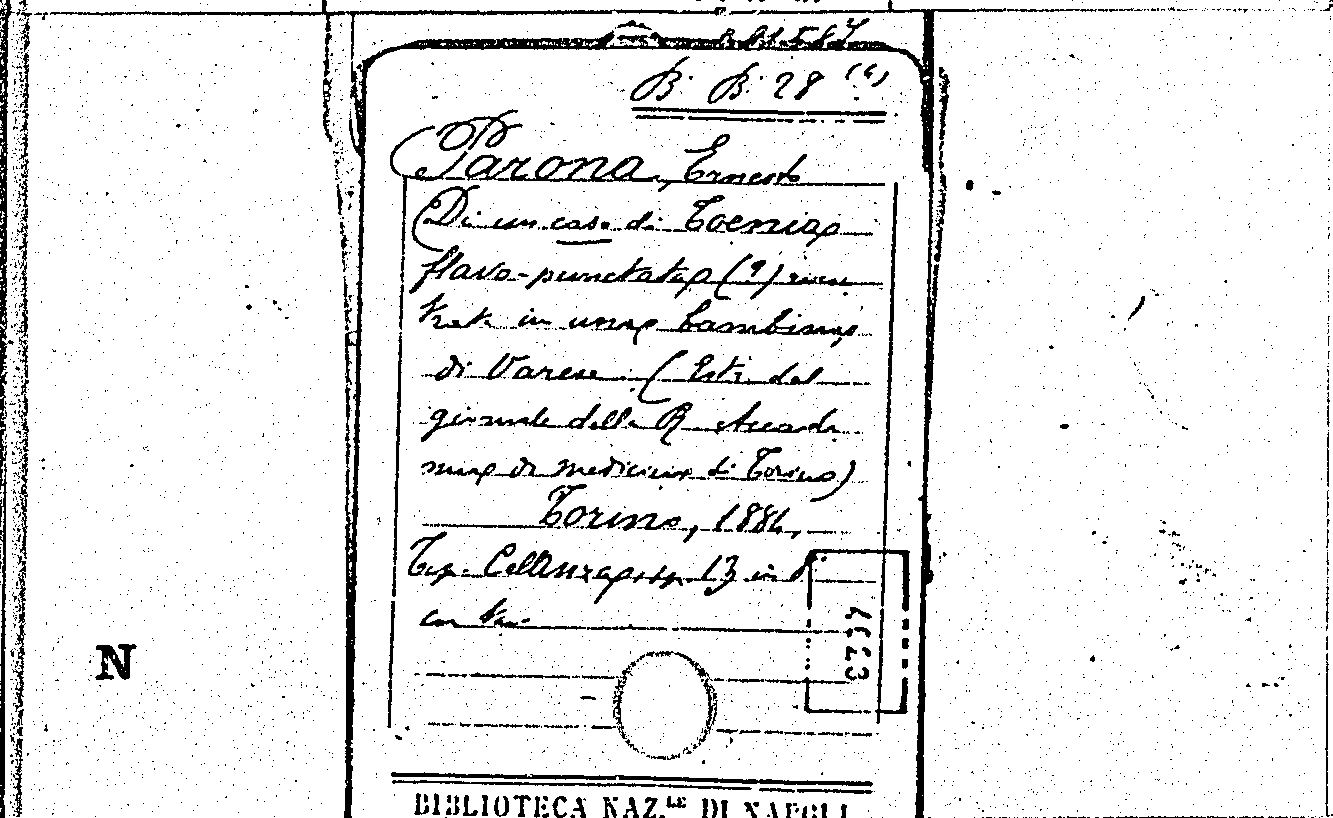 B. B. 28 (6)
Parona, Ernesto
Di un caso di Toenia
flavo-punctata (?) riscon
trata in una bambina
di Varese. (Estr. dal
giornale della R. Accade
mia di medicina di Torino)
Torino, 1884,
Tip. Celanza pp. 13 in 8°
con tav.
N
BIBLIOTECA NAZ.LE DI NAPOLI